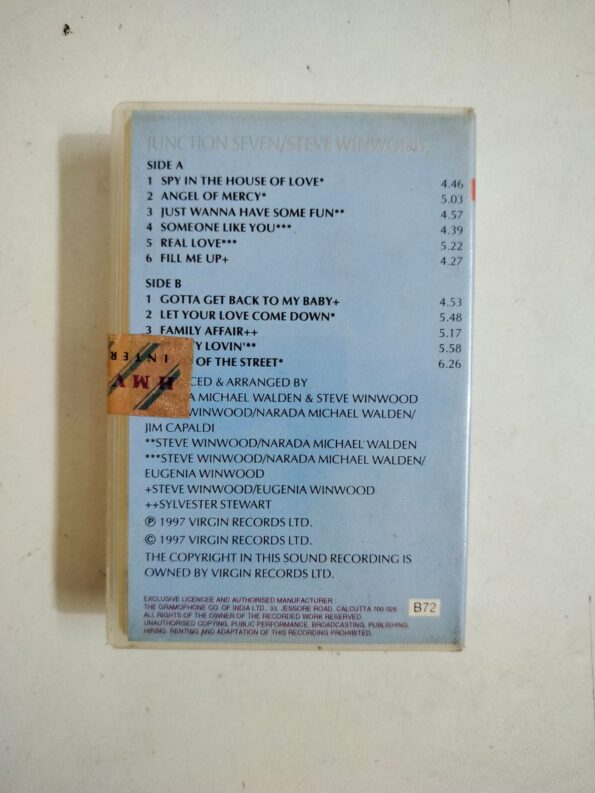 JUNCTION SEVEN/STEVE WINWOOD
SIDE A
1 SPY IN THE HOUSE OF LOVE* 4.46
2 ANGEL OF MERCY* 5.03
3 JUST WANNA HAVE SOME FUN** 4.57
4 SOMEONE LIKE YOU*** 4.39
5 REAL LOVE*** 5.22
6 FILL ME UP+ 4.27
SIDE B
1 GOTTA GET BACK TO MY BABY+ 4.53
2 LET YOUR LOVE COME DOWN* 5.48
3 FAMILY AFFAIR++ 5.17
LOVIN'** 5.58
OF THE STREET* 6.26
HMV
INTER
& ARRANGED BY
MICHAEL WALDEN & STEVE WINWOOD
WINWOOD/NARADA MICHAEL WALDEN/
JIM CAPALDI
**STEVE WINWOOD/NARADA MICHAEL WALDEN
***STEVE WINWOOD/NARADA MICHAEL WALDEN/
EUGENIA WINWOOD
+STEVE WINWOOD/EUGENIA WINWOOD
++SYLVESTER STEWART
℗ 1997 VIRGIN RECORDS LTD.
© 1997 VIRGIN RECORDS LTD.
THE COPYRIGHT IN THIS SOUND RECORDING IS
OWNED BY VIRGIN RECORDS LTD.
EXCLUSIVE LICENCEE AND AUTHORISED MANUFACTURER
THE GRAMOPHONE CO. OF INDIA LTD., 33, JESSORE ROAD, CALCUTTA 700 028
ALL RIGHTS OF THE OWNER OF THE RECORDED WORK RESERVED.
UNAUTHORISED COPYING, PUBLIC PERFORMANCE, BROADCASTING, PUBLISHING,
HIRING, RENTING AND ADAPTATION OF THIS RECORDING PROHIBITED.
B72